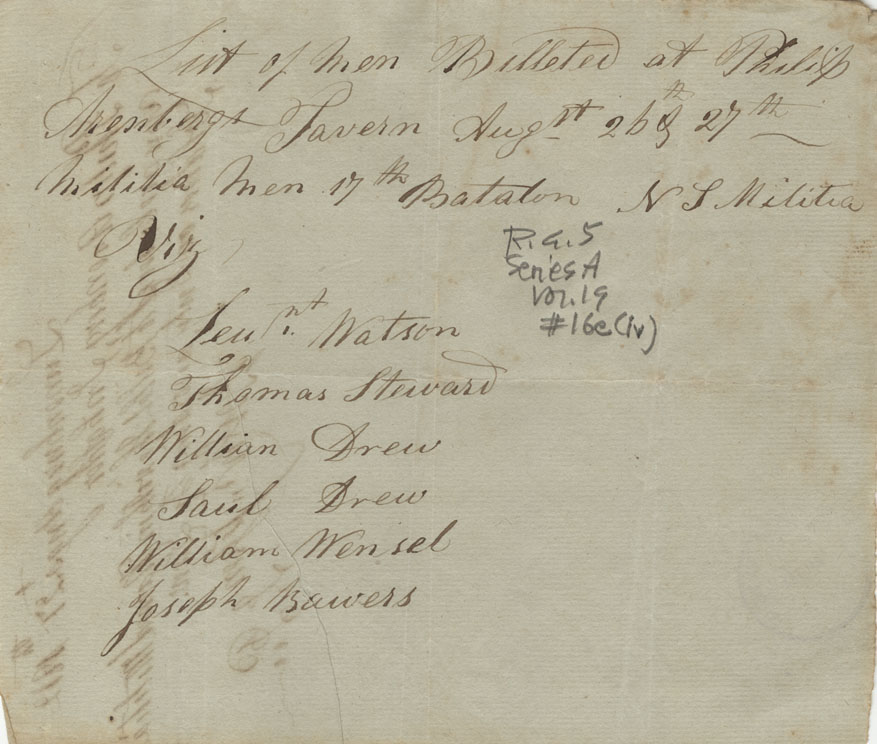 List of Men Billeted at Philip
Arenbergs Tavern Augst 26th & 27th
Militia Men 17th Batalon N S Militia
Viz
Leunt. Watson
Thomas Steward
Willian Drew
Saul Drew
William Wensel
Joseph Bawers
R.G.5
Series A
Vol.19
#16e(iv)